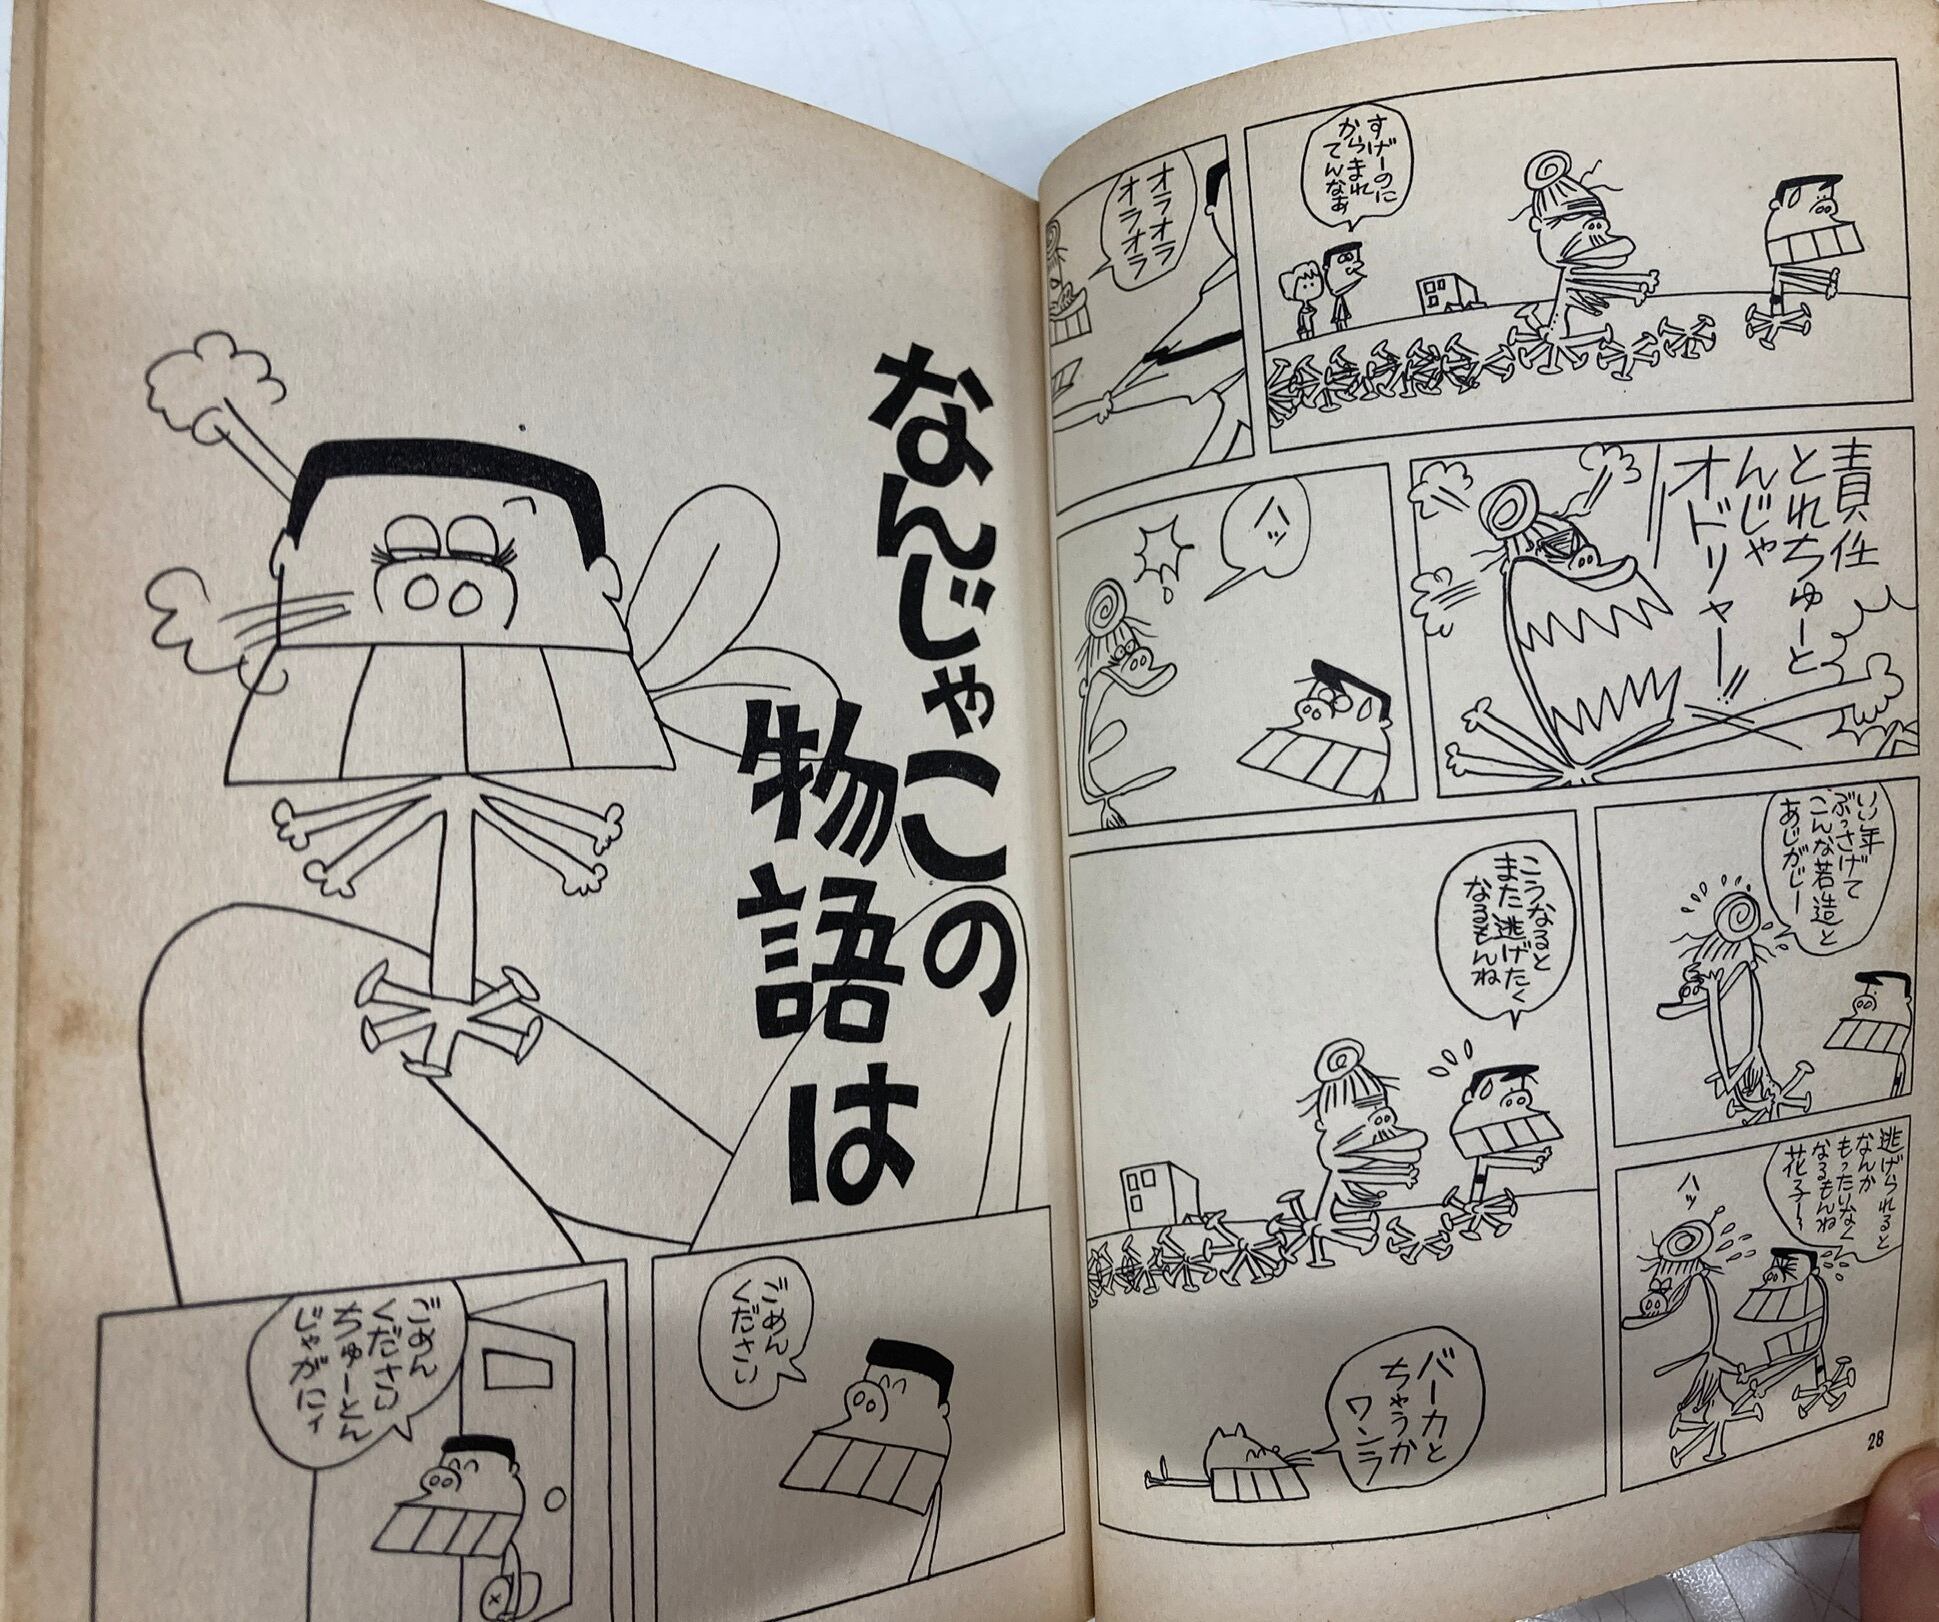 すげーのに
からまれ
てんなぁ
オラオラ
オラオラ
責任
とれちゅーと
んじゃ
オドリャー!!
ハッ
いい年
ぶっさげて
こんな若造と
あじがじー
逃げられると
なんか
もったいなく
なるもんね
花子〜
ハッ
こうなると
また逃げたく
なるもんね
バーカと
ちゃうか
ワンラ
28
なんじゃこの
物語は
ごめん
ください
ごめん
ください
ちゅーとん
じゃがにィ